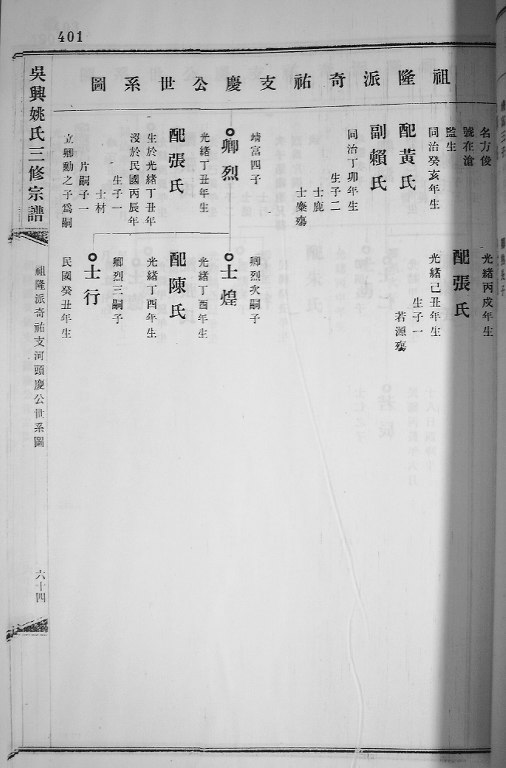 401
祖隆派奇祐支慶公世系圖
名方俊
號在滄
監生
同治癸亥年生
配黃氏
副賴氏
同治丁卯年生
生子二
士鹿
士麋殤
靖富四子
卿烈
光緒丁丑年生
配張氏
生於光緒丁丑年
沒於民國丙辰年
生子一
士材
片嗣子一
立卿勳之子為嗣
光緒丙戌年生
配張氏
光緒己丑年生
生子一
若源殤
卿烈次嗣子
士煌
光緒丁酉年生
配陳氏
光緒丁酉年生
卿烈三嗣子
士行
民國癸丑年生
吳興姚氏三修宗譜
祖隆派奇祐支河頭慶公世系圖
六十四